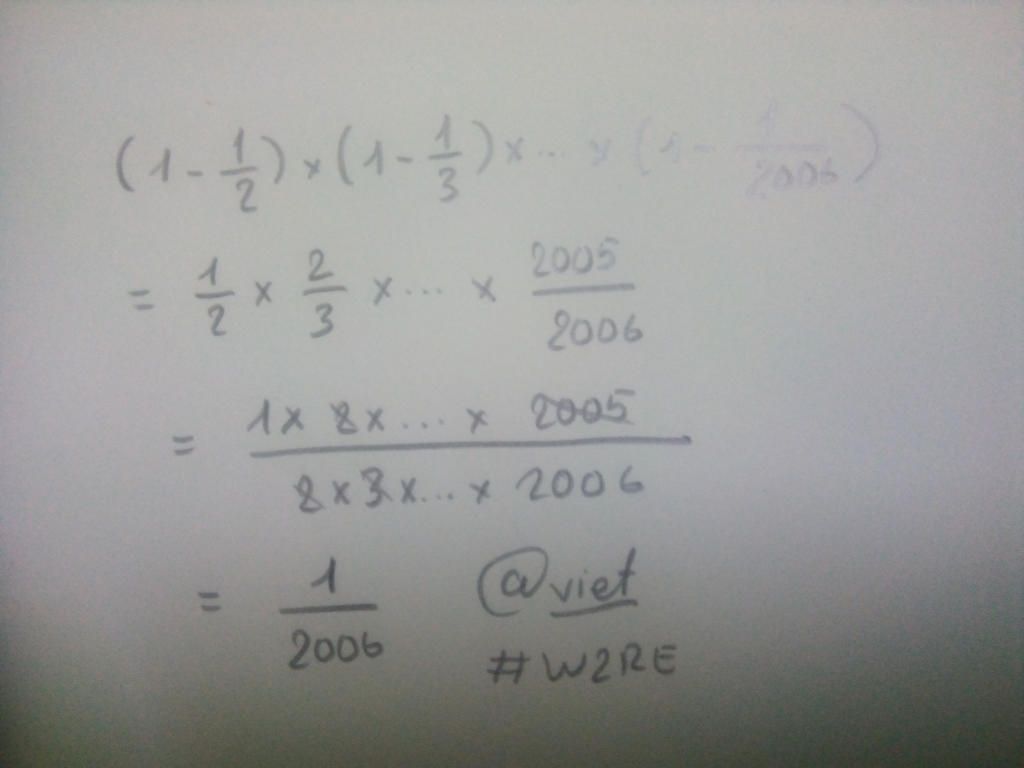 (1 - 1/2) x (1 - 1/3) x ... x (1 - 1/2006)
= 1/2 x 2/3 x ... x 2005/2006
= 1 x 2 x ... x 2005 / 2 x 3 x ... x 2006
= 1/2006 @viet
#W2RE